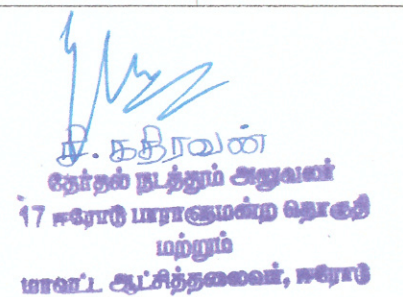 சி. கதிரவன்
தேர்தல் நடத்தும் அலுவலர்
17 ஈரோடு பாராளுமன்ற தொகுதி
மற்றும்
மாவட்ட ஆட்சித்தலைவர், ஈரோடு